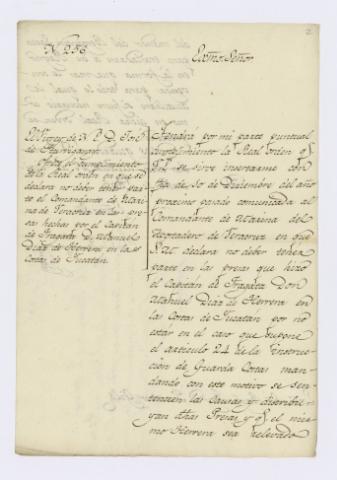 Nº 256.
Exmo. Señor
El Virrey de N. E. D. José
de Iturrigaray
Ofrece el cumplimiento
de la Real orden en que se
declara no deber tener par-
te el Comandante de Mari-
na de Veracruz en las pre-
sas hechas por el Capitan
de Fragata D. Manuel
Diaz de Herrera en las
Costas de Yucatán.
Tendrá por mi parte puntual
cumplimiento la Real orden q.
V.E. se sirve insertarme con
fha. de 30 de Diciembre del año
proximo pasado comunicada al
Comandante de Marina del
Apostadero de Veracruz en que
S.M. declara no deber tener
parte en las presas que hizo
el Capitan de Fragata Don
Manuel Diaz de Herrera en
las Costas de Yucatan por no
estár en el caso que supone
el articulo 24 de la instruc-
ción de Guarda Costas man-
dando con este motivo se sen-
tencien las Causas y distribu-
yan dhas Presas y q. el mis-
mo Herrera sea relevado